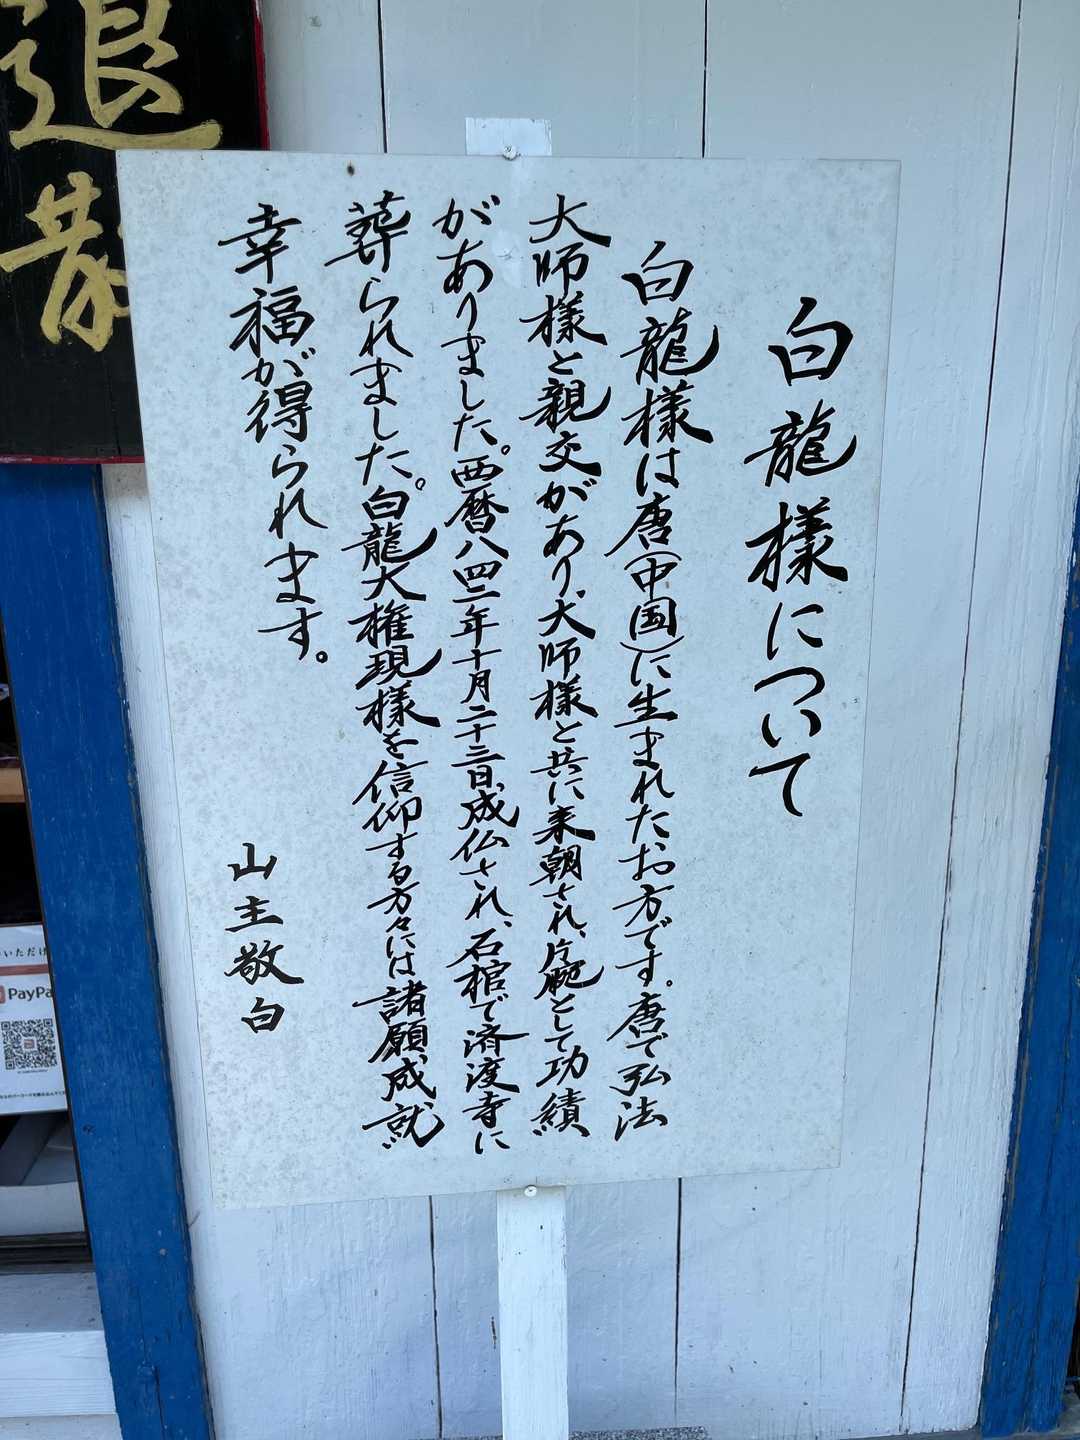 白龍様について
白龍様は唐(中国)に生まれたお方です。唐で弘法
大師様と親交があり、大師様と共に来朝され、片腕として功績
がありました。西暦八四二年十月二十三日、成仏され、石棺で済渡寺に
葬られました。白龍大権現様を信仰する方々には諸願成就
幸福が得られます。
山主敬白
退散
いただけ
PayPa